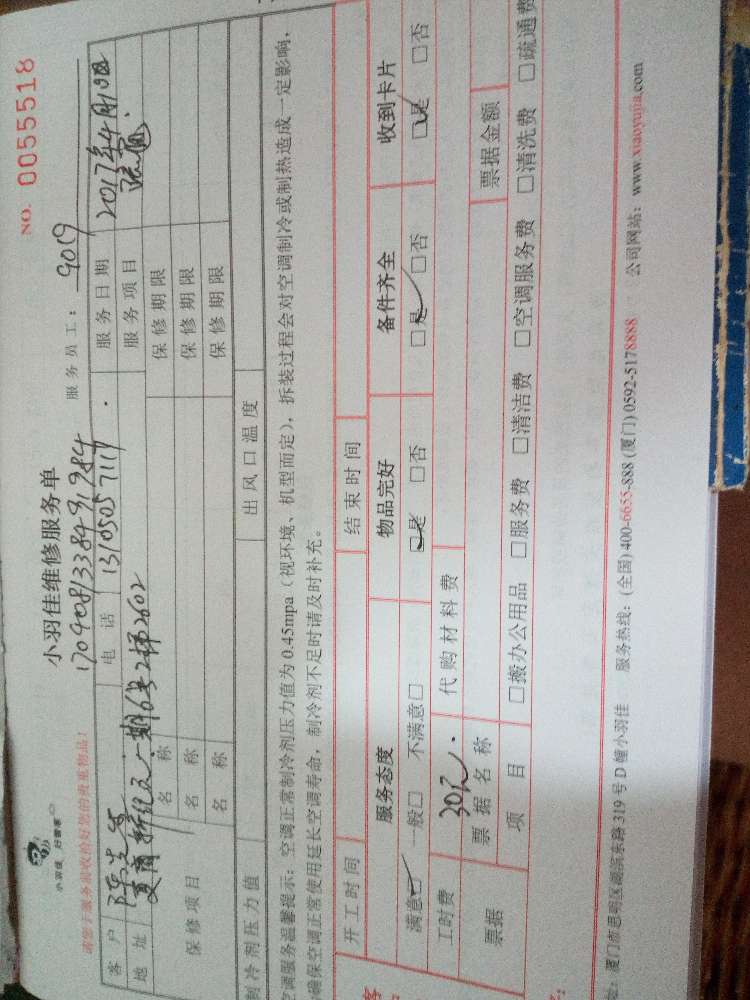 小羽佳 好管家
小羽佳维修服务单
NO. 0055518
请您于服务前收拾好您的贵重物品!
170408133849 1984
服务员工: 9019
客户 电话 13105057119 服务日期 2017年4月10日
地址 夏商新纪元一期6号2梯2602 服务项目
保修项目 名称 保修期限
名称 保修期限
名称 保修期限
制冷剂压力值 出风口温度
空调服务温馨提示:空调正常制冷剂压力值为 0.45mpa(视环境、机型而定),拆装过程会对空调制冷或制热造成一定影响,
确保空调正常使用延长空调寿命,制冷剂不足时请及时补充。
开工时间 结束时间
服务态度 物品完好 备件齐全 收到卡片
满意□ 一般□ 不满意□ □是 □否 □是 □否 □是 □否
工时费 30元. 代购材料费
票据 票据名称 票据金额
项目 □搬办公用品 □服务费 □清洁费 □空调服务费 □清洗费 □疏通费
址:厦门市思明区湖滨东路 319 号 D 幢小羽佳 服务热线:(全国) 400-6655-888 (厦门) 0592-5178888 公司网站:www.xiaoyujia.com